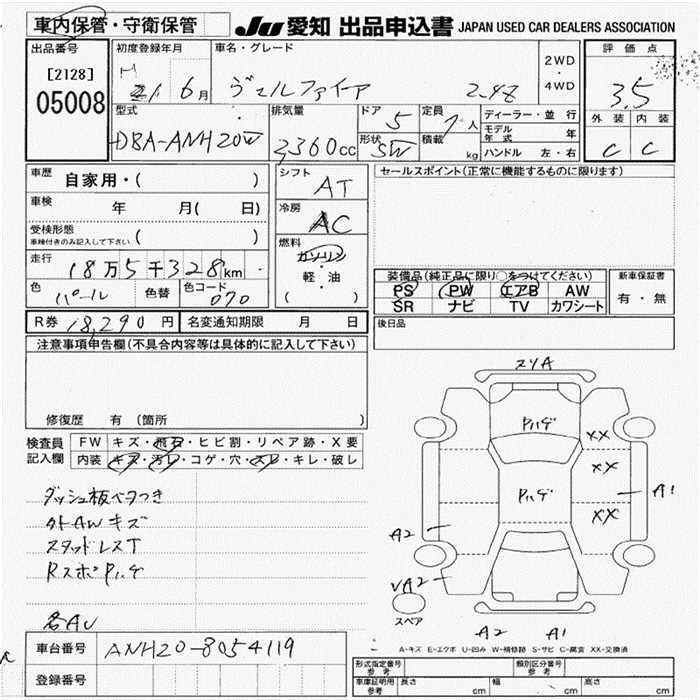 車内保管・守衛保管 JU 愛知 出品申込書 JAPAN USED CAR DEALERS ASSOCIATION
出品番号 初度登録年月 車名・グレード 評価点
[2128] H21 6月 ヴェルファイア 2.4Z 2WD ・ 4WD 3.5
05008
型式 排気量 ドア 定員 ディーラー・並行 外装 内装
DBA-ANH20W 2360cc 5 7人 モデル年式 年 C C
形状 SW 積載 kg ハンドル 左・右
車歴 自家用・( ) シフト AT セールスポイント(正常に機能するものに限ります)
車検 年 月( 日) 冷房 AC
受検形態 ( )
車検付きのみ記入して下さい
燃料 ガソリン・軽・油 ( )
走行 18万5千328km 装備品(純正品に限り○をつけてください) 新車保証書
色 パール 色替 色コード 070 PS PW エアB AW 有・無
SR ナビ TV カワシート
R券 18,290円 名変通知期限 月 日 後日品
注意事項申告欄(不具合内容等は具体的に記入して下さい)
修復歴 有 (箇所 )
検査員記入欄 FW キズ・飛石・ヒビ割・リペア跡・X要
内装 キズ・汚レ・コゲ・穴・スレ・キレ・破レ
ダッシュ板ベタつき
外AWキズ
スタッドレスT
RスポPハゲ
名AU
スリA
Pハゲ
XX
XX
Pハゲ
XX
A1
A2
VA2
スペア
A2 A1
A-キズ E-エクボ U-凹み W-補修跡 S-サビ C-腐食 XX-交換済
車台番号 ANH20-8054119
登録番号
型式指定番号 参考 類別区分番号 参考
車庫証明用 参考 長さ cm 幅 cm 高さ cm